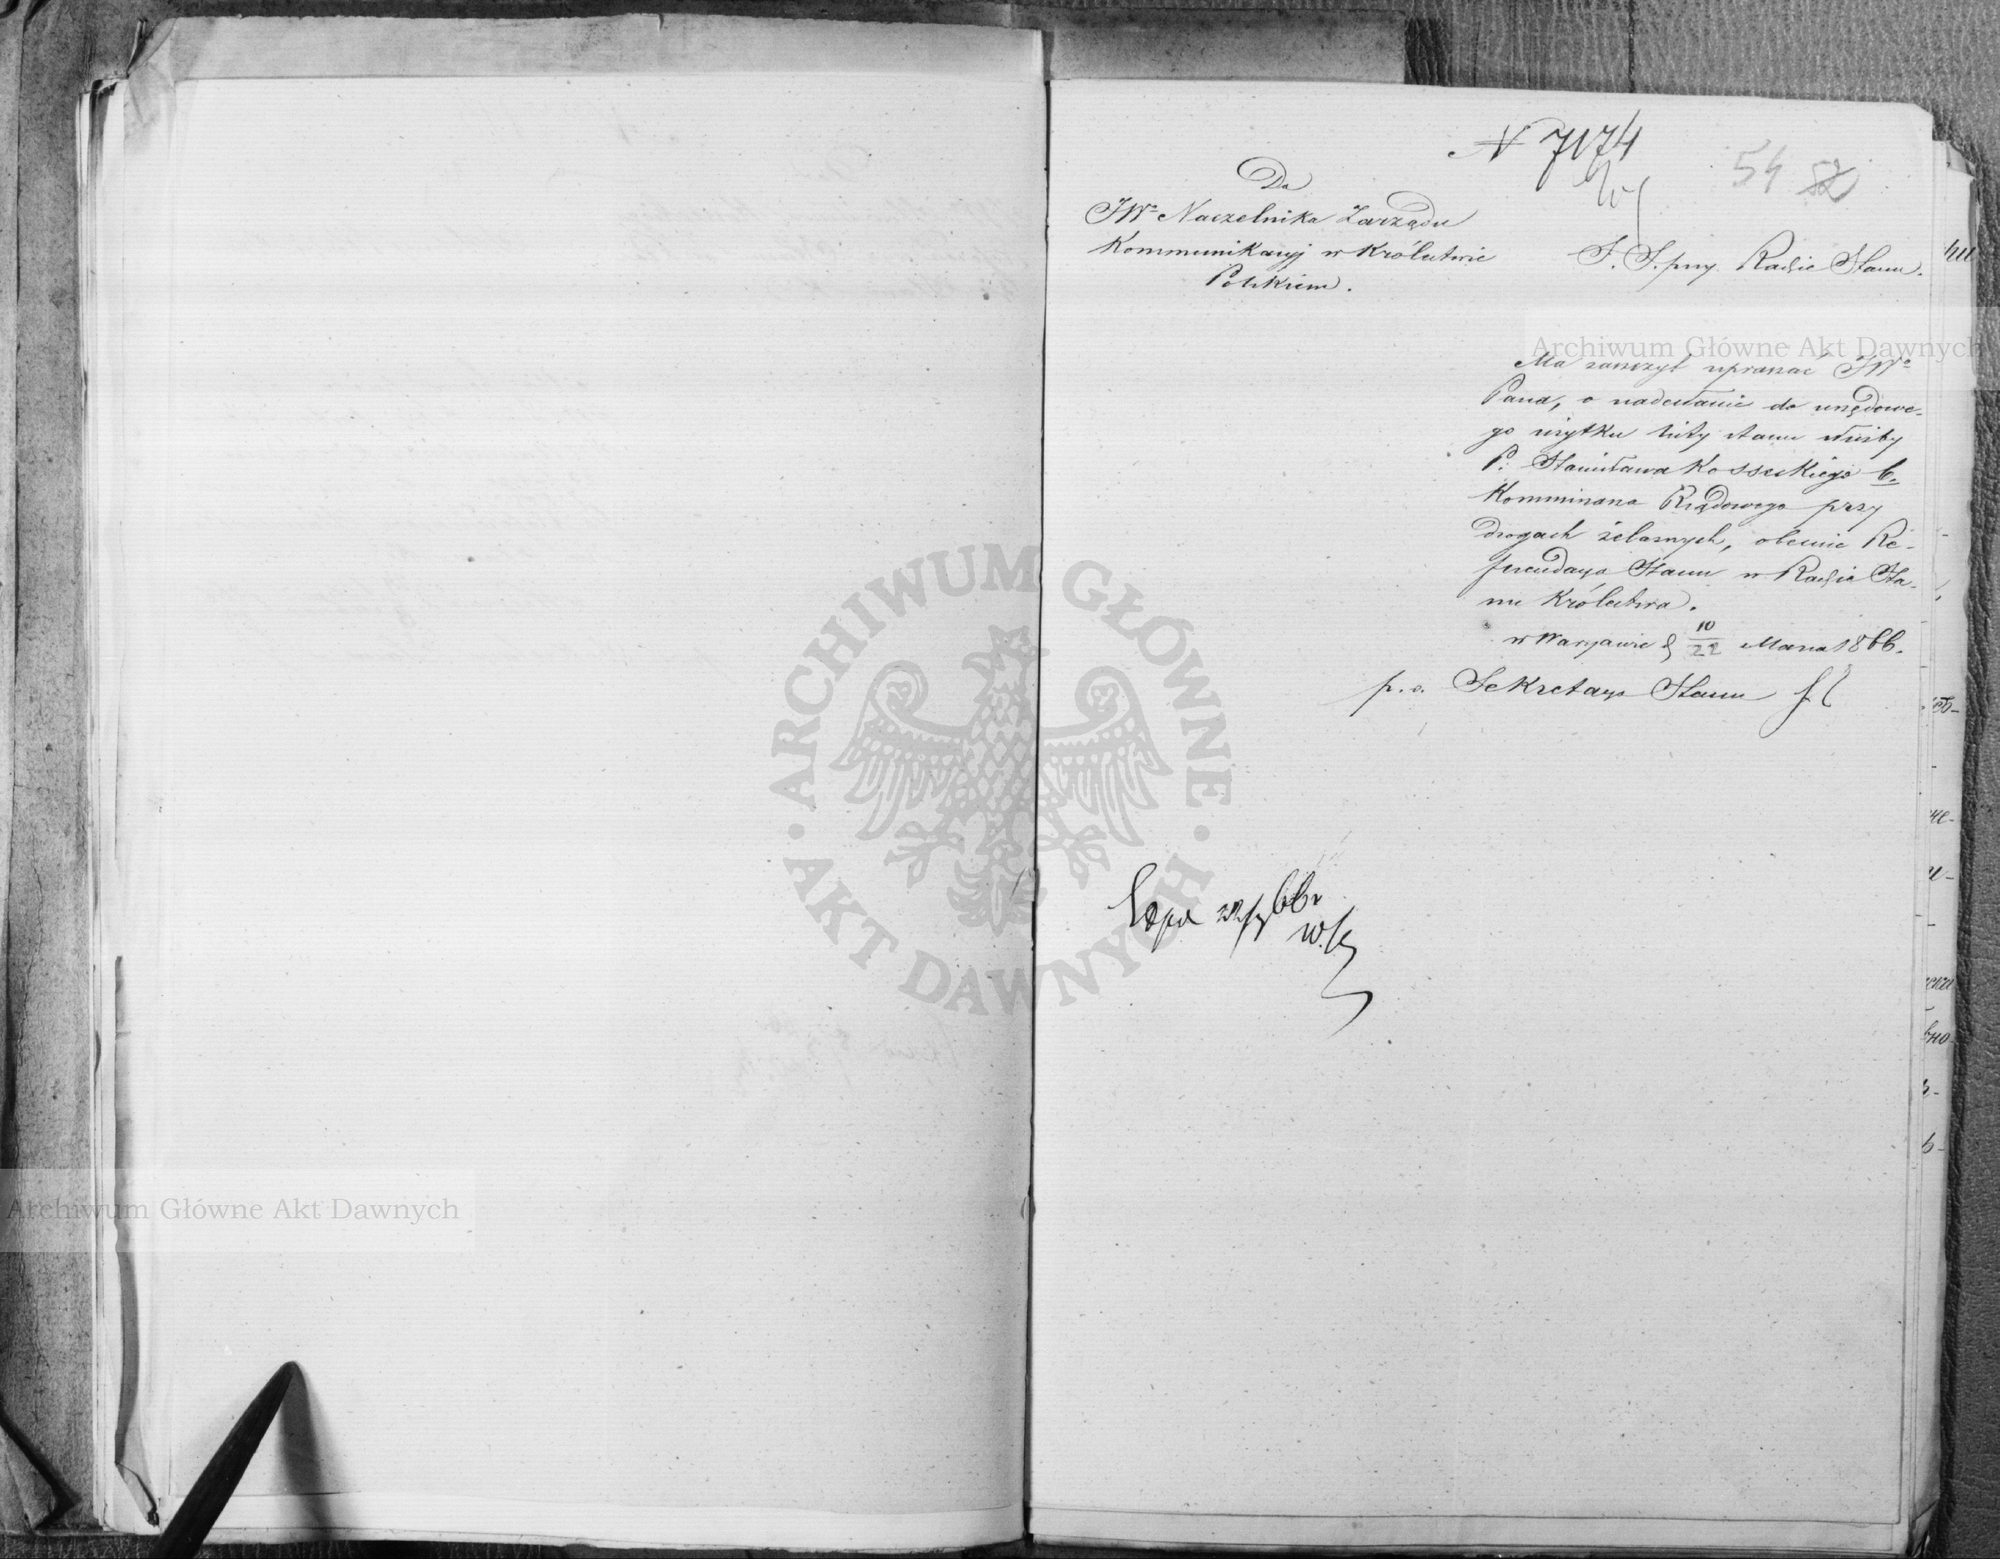 N 7174
54 52
Do
JWo Naczelnika Zarządu
Kommunikacyj w Królestwie
Polskiem.
S. S. przy Radzie Stanu.
Archiwum Główne Akt Dawnych
Ma zaszczyt upraszać JWo
Pana, o nadesłanie do urzędowe-
go użytku listy stanu służby
P. Stanisława Kossuskiego b.
Kommissarza Rządowego przy
drogach żelaznych, obecnie Re-
ferendarza Stanu w Radzie Sta-
nu Królestwa.
w Warszawie d 10/22 Marca 1866.
p. o. Sekretarza Stanu
ARCHIWUM GŁÓWNE
AKT DAWNYCH
Exped 22/3 66 r
Archiwum Główne Akt Dawnych